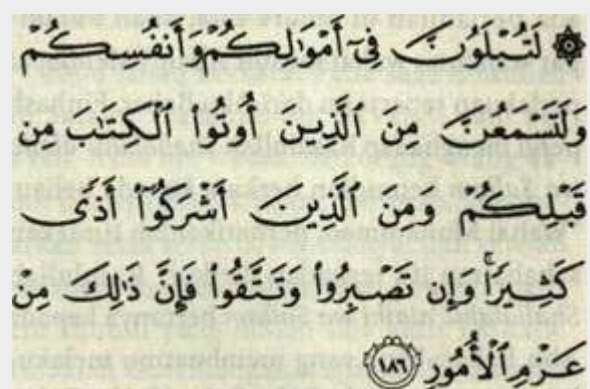 ۞ لَتُبْلَوُنَّ فِىٓ أَمْوَٰلِكُمْ وَأَنفُسِكُمْ
وَلَتَسْمَعُنَّ مِنَ ٱلَّذِينَ أُوتُوا۟ ٱلْكِتَٰبَ مِن
قَبْلِكُمْ وَمِنَ ٱلَّذِينَ أَشْرَكُوٓا۟ أَذًى
كَثِيرًا ۚ وَإِن تَصْبِرُوا۟ وَتَتَّقُوا۟ فَإِنَّ ذَٰلِكَ مِنْ
عَزْمِ ٱلْأُمُورِ ١٨٦